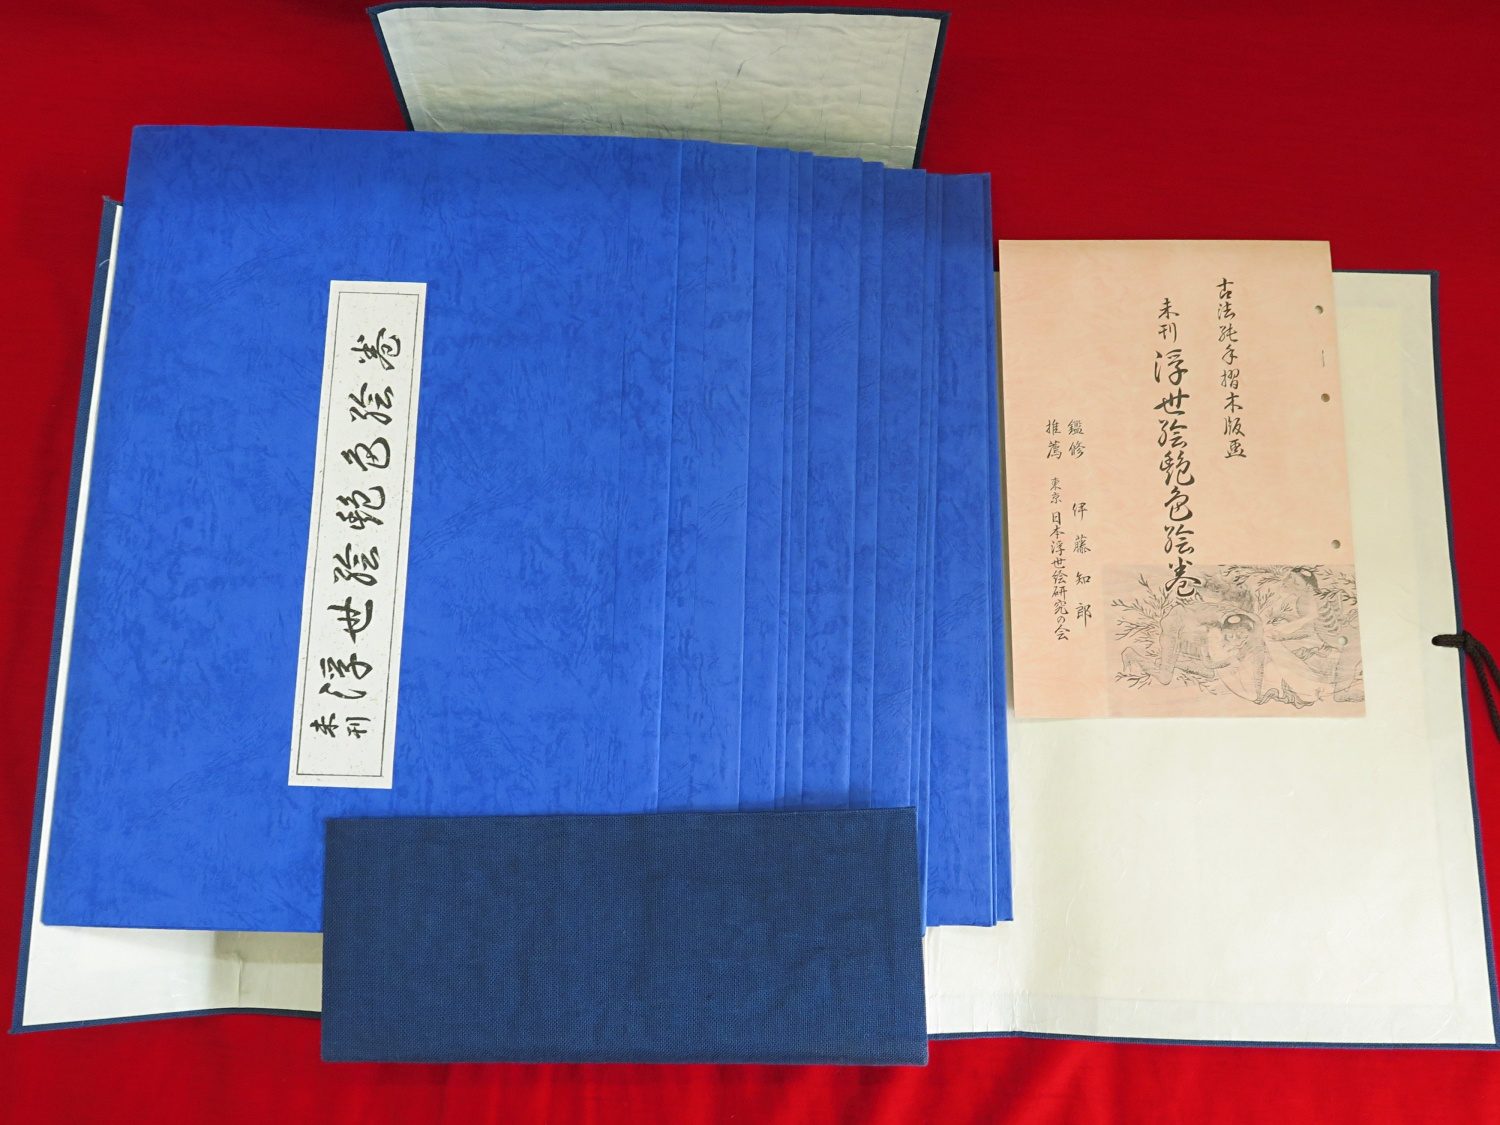 未刊 浮世絵艶色絵巻
古法純手摺木版画
未刊 浮世絵艶色絵巻
鑑修
推薦
伊藤知郎
東京 日本浮世絵研究の会